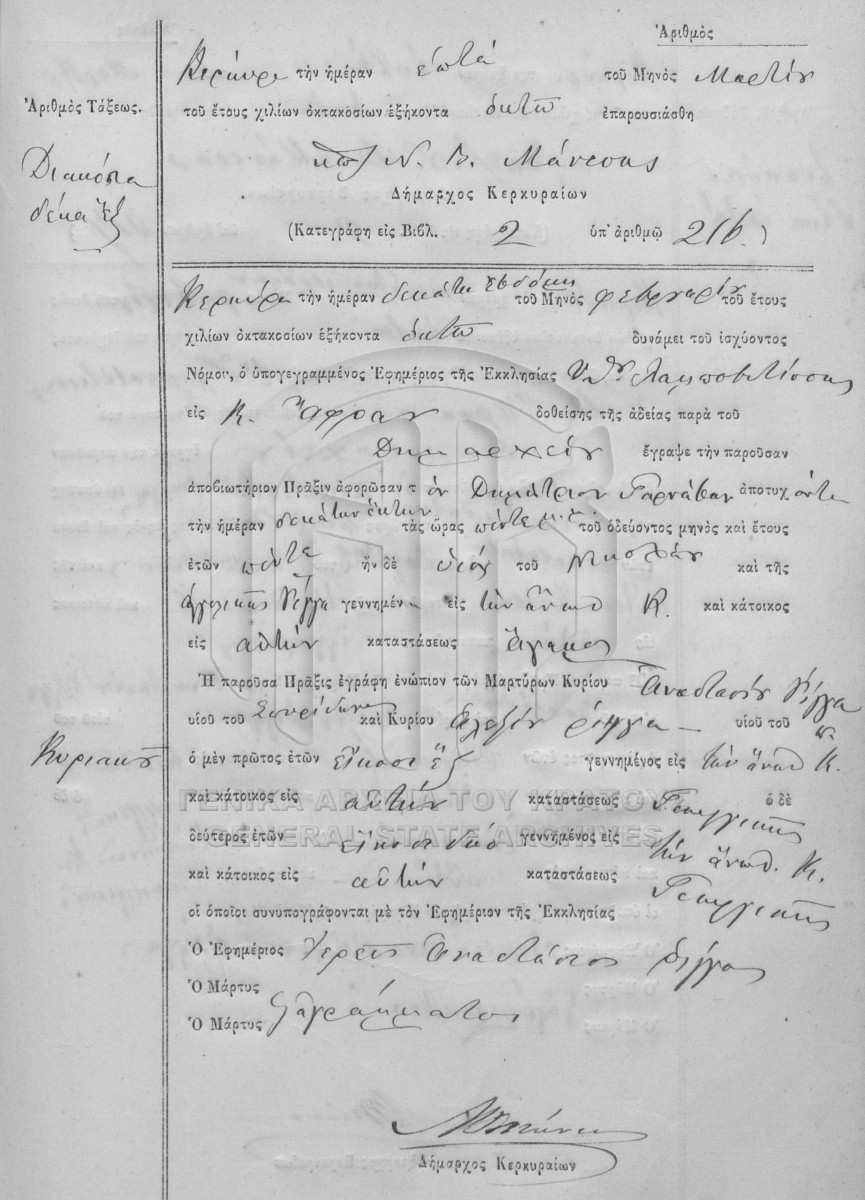 Ἀριθμὸς
Κερκύρᾳ τὴν ἡμέραν ἑπτὰ τοῦ Μηνὸς Μαρτίου
Ἀριθμὸς Τάξεως.
τοῦ ἔτους χιλίων ὀκτακοσίων ἑξήκοντα ὀκτὼ ἐπαρουσιάσθη
Διακόσια
δέκα ἕξ
Ν. Β. Μάνεσης
Δήμαρχος Κερκυραίων
(Κατεγράφη εἰς Βιβλ. 2 ὑπ' ἀριθμῷ 216.)
Κερκύρᾳ τὴν ἡμέραν δεκάτη ἑβδόμη τοῦ Μηνὸς Φεβρουαρίου τοῦ ἔτους
χιλίων ὀκτακοσίων ἑξήκοντα ὀκτὼ δυνάμει τοῦ ἰσχύοντος
Νόμου, ὁ ὑπογεγραμμένος Ἐφημέριος τῆς Ἐκκλησίας Υ. Θ. Λαμποβιτίσσης
εἰς Κ. Ἄφραν δοθείσης τῆς ἀδείας παρὰ τοῦ
Δημαρχείου ἔγραψε τὴν παροῦσαν
ἀποβιωτήριον Πρᾶξιν ἀφορῶσαν τὸν Δημήτριον Γαρνάβαν ἀποτυχόντα
τὴν ἡμέραν δεκάτην ἕκτην τὰς ὥρας πέντε μ.μ. τοῦ ὁδεύοντος μηνὸς καὶ ἔτους
ἐτῶν πέντε ἦν δὲ υἱὸς τοῦ Νικολάου καὶ τῆς
Ἀγγελικῆς Ρίγγα γεννημένον εἰς τὴν ἄνωθ Κ. καὶ κάτοικος
εἰς αὐτὴν καταστάσεως ἄγαμος
Ἡ παροῦσα Πρᾶξις ἐγράφη ἐνώπιον τῶν Μαρτύρων Κυρίου Ἀναστασίου Ρίγγα
υἱοῦ τοῦ Σπυρίδωνος καὶ Κυρίου Ἀλεξίου Ρίγγα υἱοῦ τοῦ
Κυριακοῦ
ὁ μὲν πρῶτος ἐτῶν εἴκοσι ἓξ γεννημένος εἰς τὴν ἄνωθ Κ.
καὶ κάτοικος εἰς αὐτὴν καταστάσεως Γεωργικῆς ὁ δὲ
ΓΕΝΙΚΑ ΑΡΧΕΙΑ ΤΟΥ ΚΡΑΤΟΥΣ
GENERAL STATE ARCHIVES
δεύτερος ἐτῶν εἴκοσι δύο γεννημένος εἰς τὴν ἄνωθ. Κ.
καὶ κάτοικος εἰς αὐτὴν καταστάσεως Γεωργικῆς
οἱ ὁποῖοι συνυπογράφονται μὲ τὸν Ἐφημέριον τῆς Ἐκκλησίας
Ὁ Ἐφημέριος Ἱερεὺς Ἀναστάσιος Ρίγγας
Ὁ Μάρτυς
Ὁ Μάρτυς ἀγράμματος
Δήμαρχος Κερκυραίων